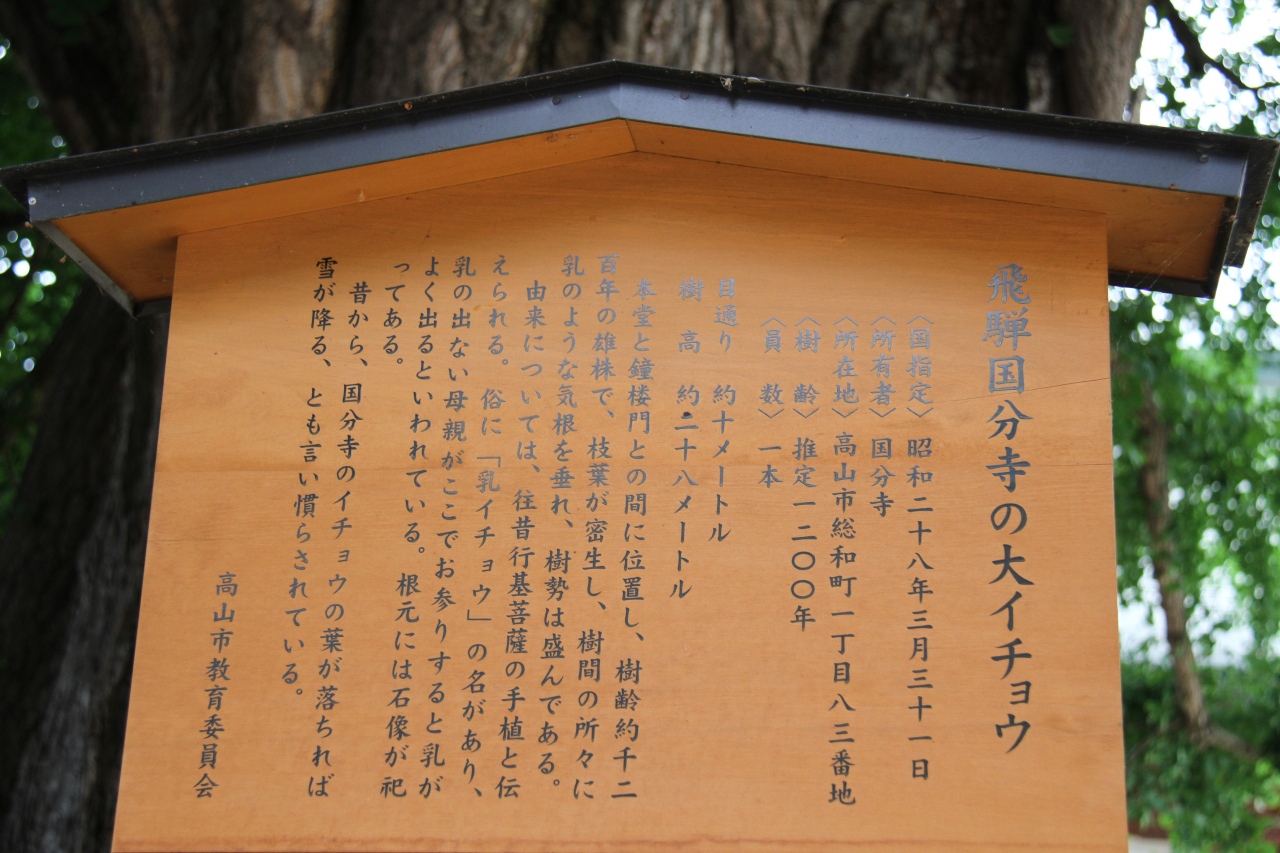 飛騨国分寺の大イチョウ
〈国指定〉 昭和二十八年三月三十一日
〈所有者〉 国分寺
〈所在地〉 高山市総和町一丁目八三番地
〈樹 齢〉 推定一二〇〇年
〈員 数〉 一本
目通り 約十メートル
樹 高 約二十八メートル
本堂と鐘楼門との間に位置し、樹齢約千二
百年の雄株で、枝葉が密生し、樹間の所々に
乳のような気根を垂れ、樹勢は盛んである。
由来については、往昔行基菩薩の手植と伝
えられる。俗に「乳イチョウ」の名があり、
乳の出ない母親がここでお参りすると乳が
よく出るといわれている。根元には石像が祀
ってある。
昔から、国分寺のイチョウの葉が落ちれば
雪が降る、とも言い慣らされている。
高山市教育委員会